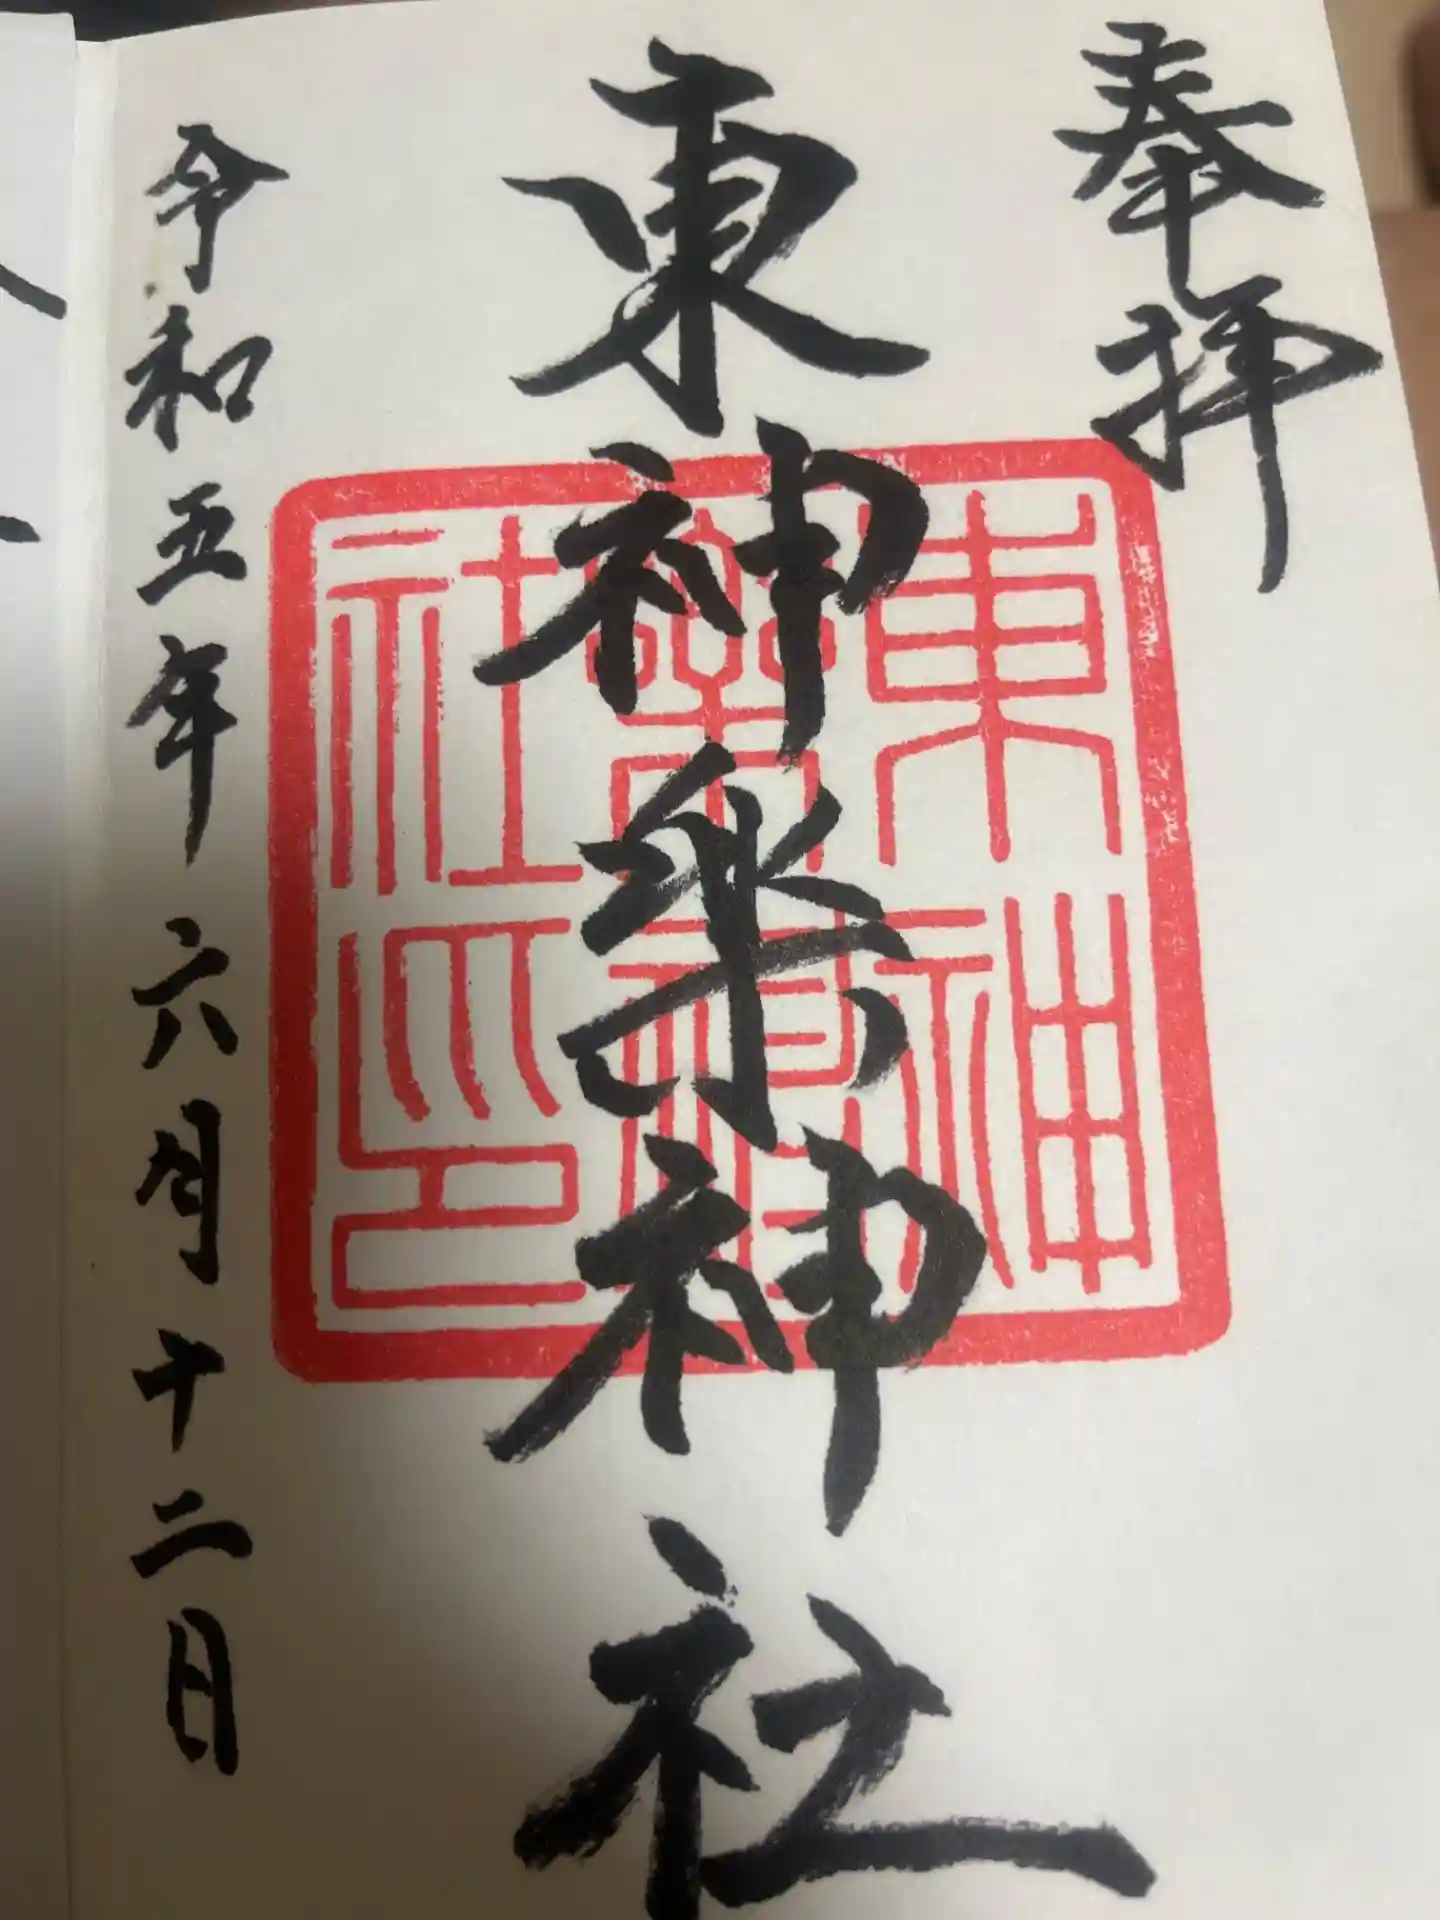 奉拝
東神楽神社
東神
楽神
社印
令和五年六月十二日